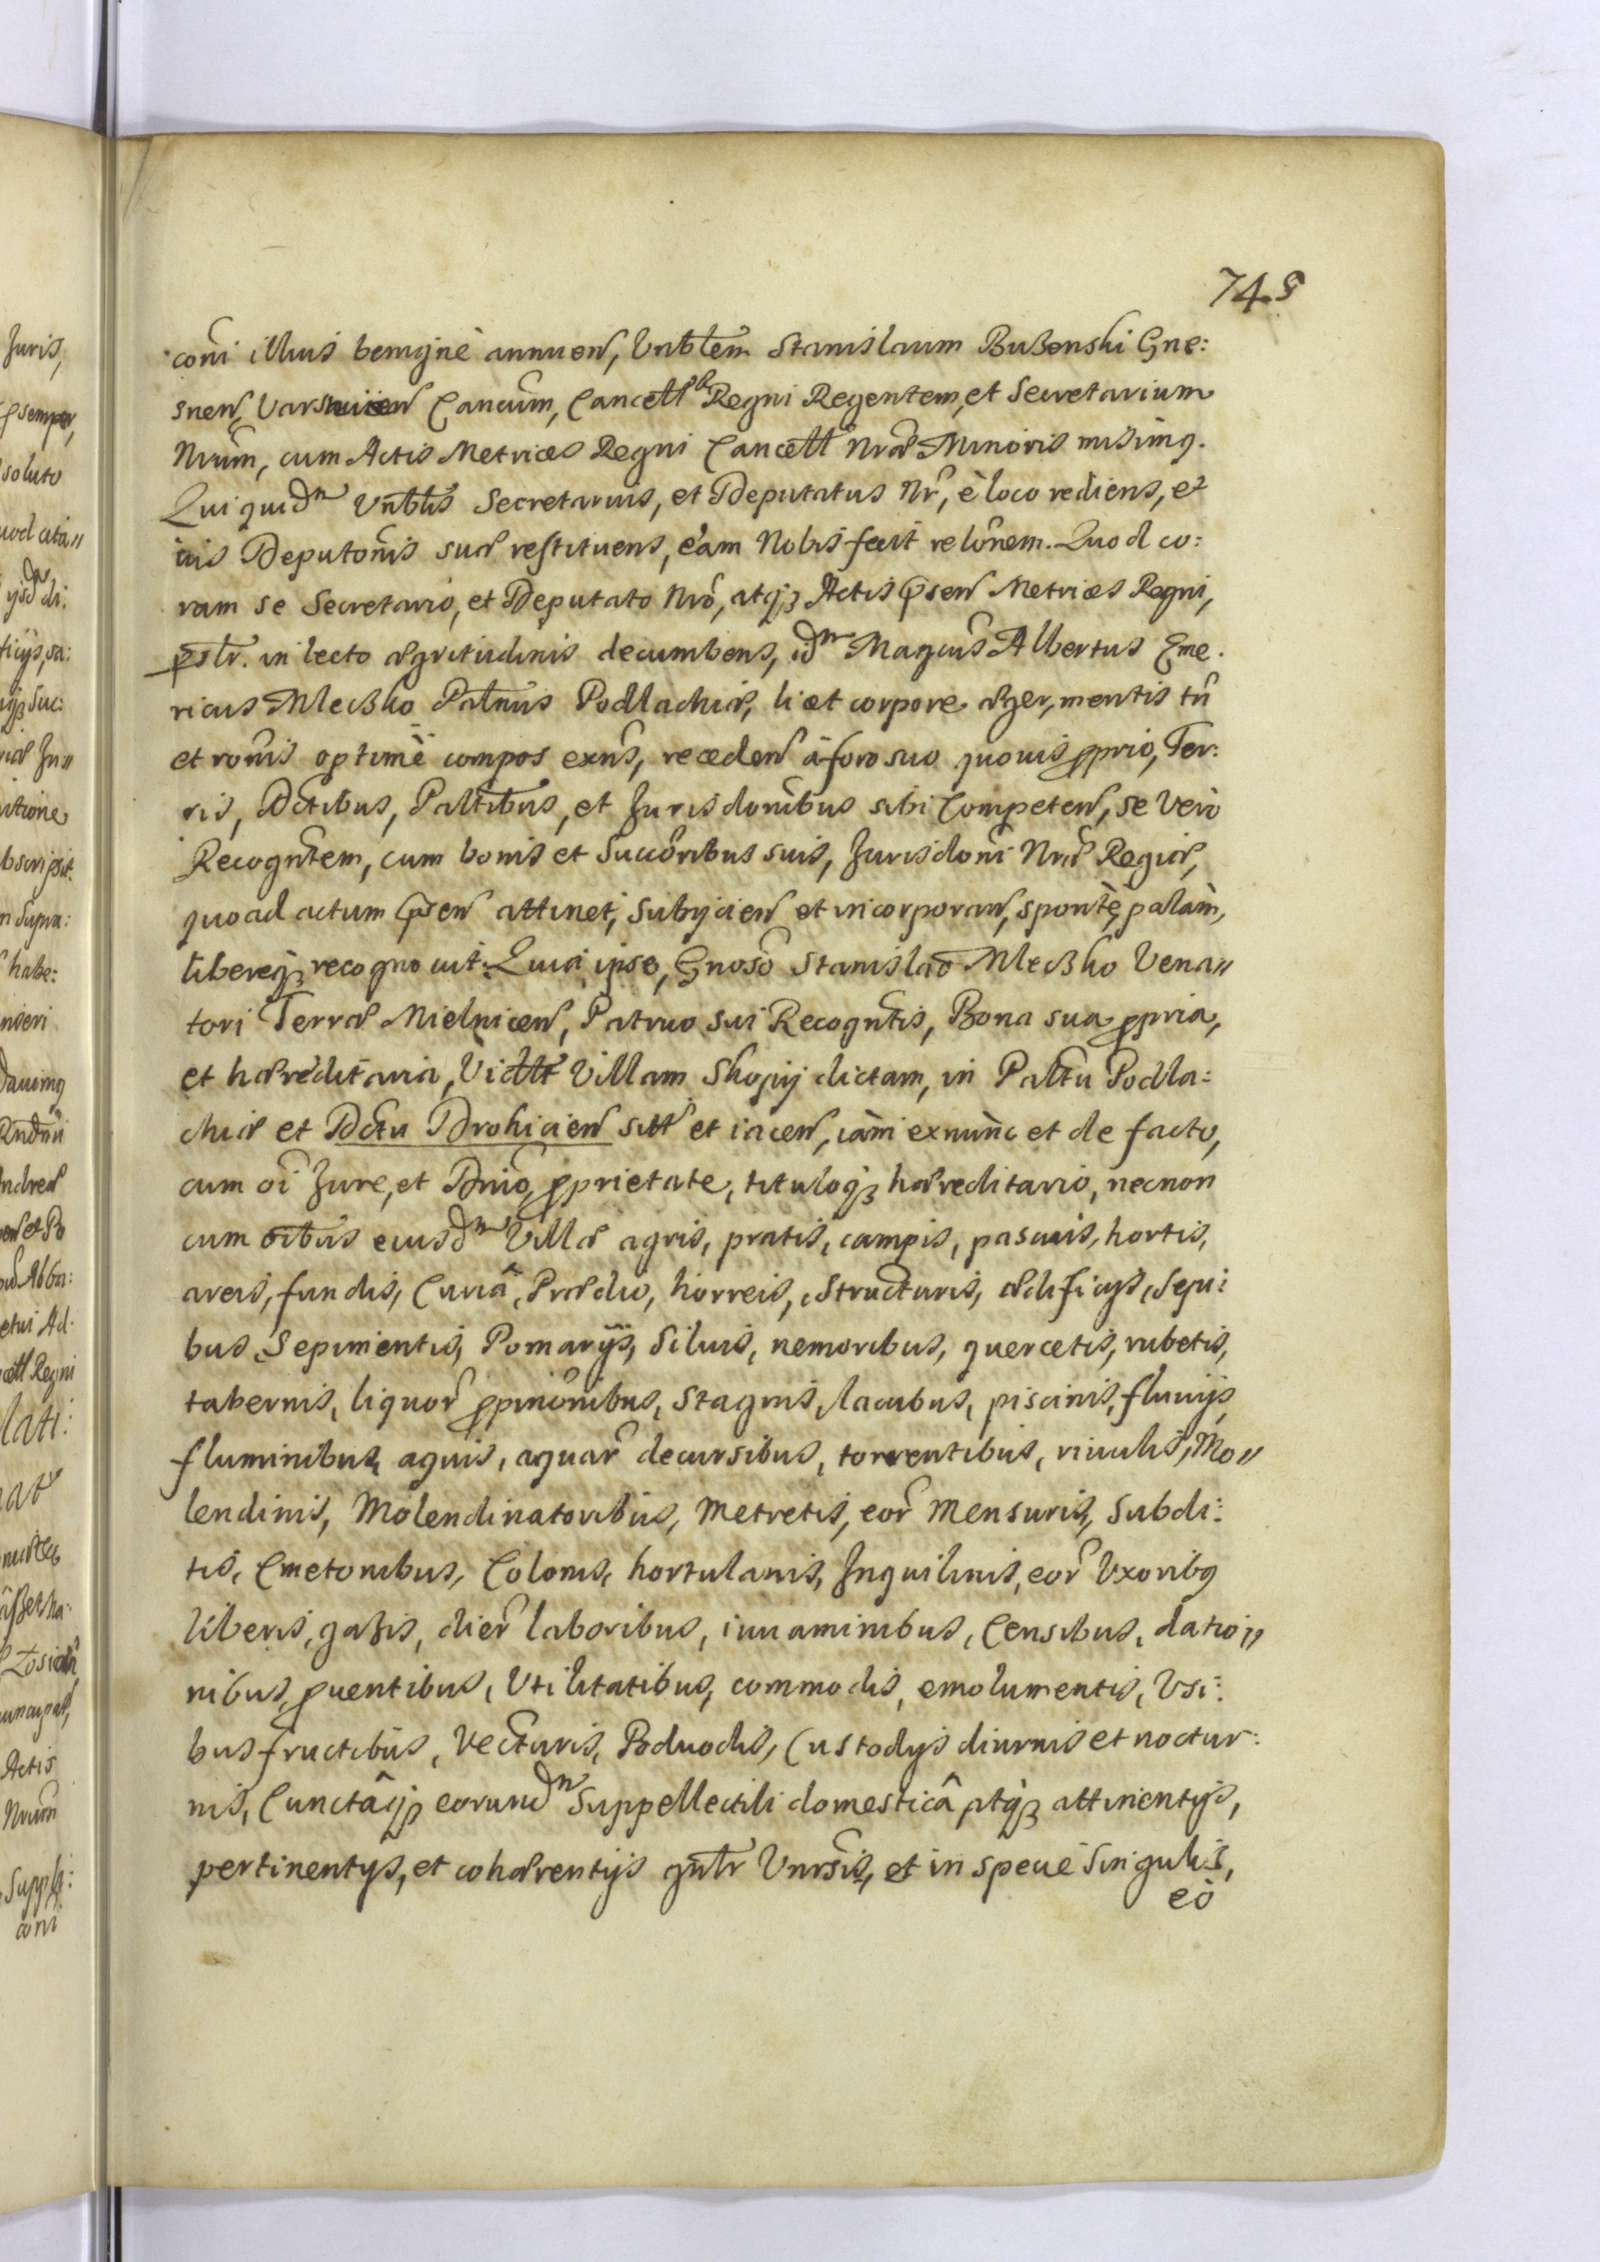 74.
coni illius benignè annuen, Vnblem Stanislaum Bużenski Gne:
snen, Varsauien Cancum, Cancell Regni Regentem, et Secretarium
Nrum, cum Actis Metrices Regni Cancell Nræ Minoris misimq.
Qui quidm Vnblis Secretarius, et Deputatus Nr, è loco rediens, et
uis Deputonis suæ restituens, eam Nobis fecit relonem. Quod co:
ram se Secretario, et Deputato Nro, atq3 Actis psen Metrices Regni,
pslr. in lecto ægritudinis decumbens, idm Magcus Albertus Eme.
ricus Mleczko Palnus Podlachiæ, licet corpore æger, mentis tn
et ronis optimè compos exns, receden à foro suo quouis pprio, Ter:
ris, Dctibus, Paltibus, et Jurisdonibus sibi Competen, se verò
Recogntem, cum bonis et Succoribus suis, Jurisdoni Nræ Regiæ,
quoad actum psen attinet, subijcien et incorporan, spontè, palàm,
libereq3 recognouit. Quia ipse, Gnoso Stanislao Mleczko Vena"
tori Terræ Mielnicen, Patruo sui Recogntis, Bona sua ppria,
et hæreditaria, Vidlt Villam Skopy dictam, in Paltu Podla:
chiæ et Dctu Drohicien sitt et iacen, iàm exnùnc et de facto,
cum oi Jure, et Dnio, pprietate, tituloq3 hæreditario, necnon
cum oibus eiusdm Villæ agris, pratis, campis, pascuis, hortis,
areis, fundis, Curiâ, Prædio, horreis, structuris, ædificijs, Sepi:
bus, Sepimentis, Pomarijs, Siluis, nemoribus, quercetis, rubetis,
tabernis, liquor ppinonibus, Stagnis, lacubus, piscinis, fluuijs,
fluminibus, aquis, aquar decursibus, torrentibus, riuulis, Mo"
lendinis, Molendinatoribus, Metretis, eor Mensuris, Subdi:
tis, Cmetonibus, Colonis, hortulanis, Inquilinis, eor Vxoribq
liberis, gazis, dier laboribus, iuuaminibus, Censibus, datio"
nibus, puentibus, Vtilitatibus, commodis, emolumentis, Vsi:
bus fructibus, Vecturis, Poduodis, Custodijs diurnis et noctur:
nis, Cunctâq3 eorundm Suppellectili domesticâ atq3 attinentijs,
pertinentijs, et cohærentijs gnlr Vnrsis, et in specie Singulis,
eò